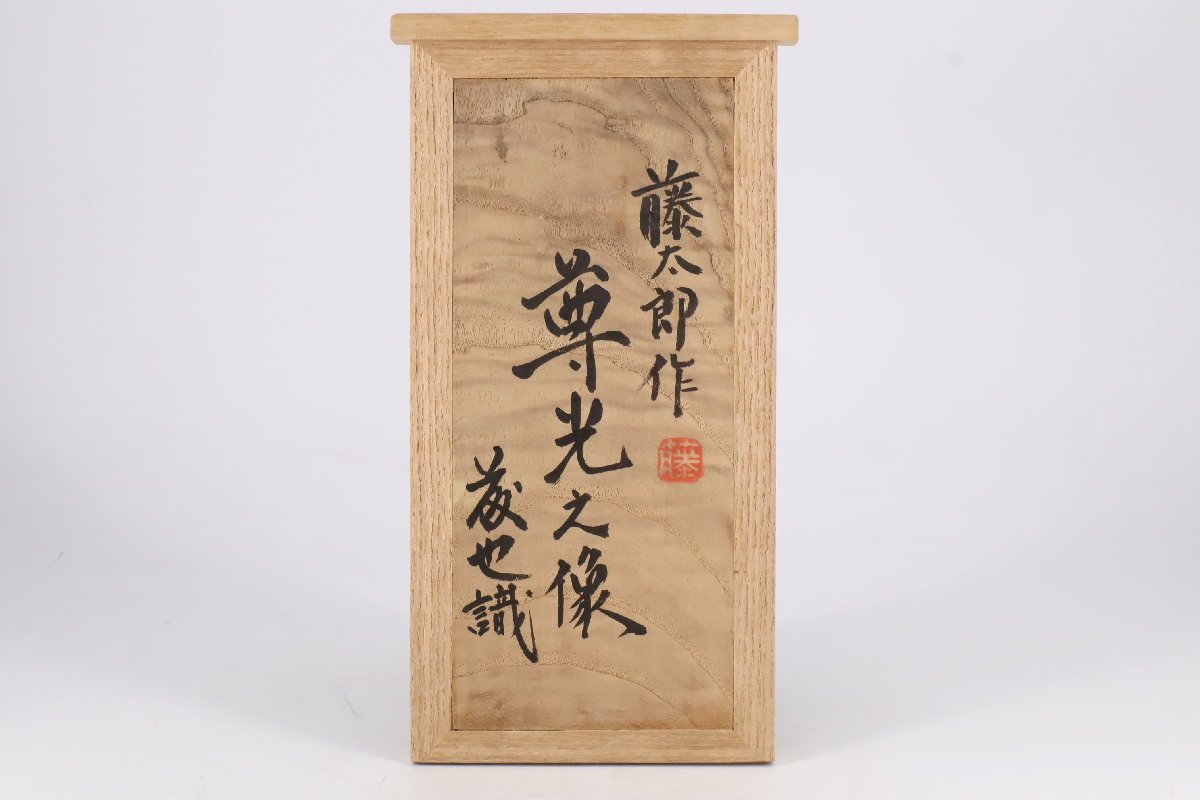 藤太郎作
藤
尊光之像
茂也識